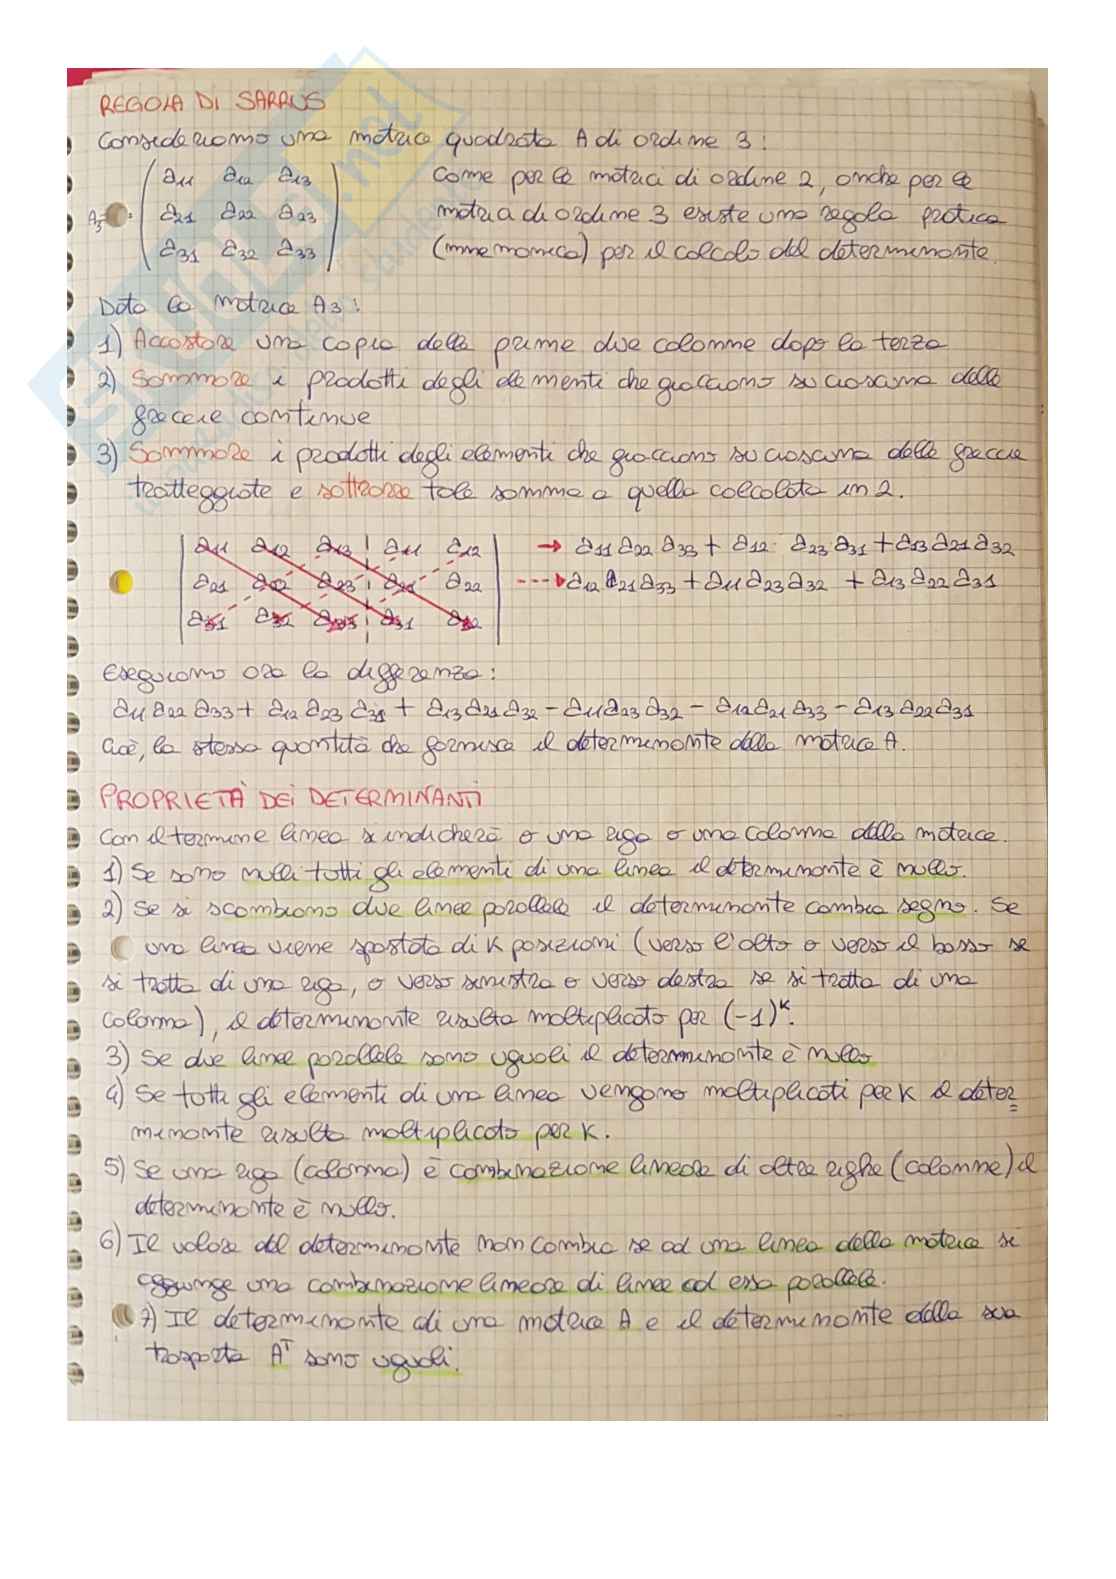 REGOLA DI SARRUS
Consideriamo una matrice quadrata A di ordine 3:
a11 a12 a13 Come per le matrici di ordine 2, anche per le
A3 = a21 a22 a23 matrici di ordine 3 esiste una regola pratica
a31 a32 a33 (mnemonica) per il calcolo del determinante.
Data la matrice A3:
1) Accostare una copia delle prime due colonne dopo la terza
2) Sommare i prodotti degli elementi che giacciono su ciascuna delle
frecce continue
3) Sommare i prodotti degli elementi che giacciono su ciascuna delle frecce
tratteggiate e sottrarre tale somma a quella calcolata in 2.
a11 a12 a13 a11 a12 → a11 a22 a33 + a12 a23 a31 + a13 a21 a32
a21 a22 a23 a21 a22 ---> a12 a21 a33 + a11 a23 a32 + a13 a22 a31
a31 a32 a33 a31 a32
Eseguiamo ora la differenza:
a11 a22 a33 + a12 a23 a31 + a13 a21 a32 - a11 a23 a32 - a12 a21 a33 - a13 a22 a31
cioè, la stessa quantità che fornisce il determinante della matrice A.
PROPRIETÀ DEI DETERMINANTI
Con il termine linea si indicherà o una riga o una colonna della matrice.
1) Se sono nulli tutti gli elementi di una linea il determinante è nullo.
2) Se si scambiano due linee parallele il determinante cambia segno. Se
una linea viene spostata di K posizioni (verso l'alto o verso il basso se
si tratta di una riga, o verso sinistra o verso destra se si tratta di una
colonna), il determinante risulta moltiplicato per (-1)^K.
3) Se due linee parallele sono uguali il determinante è nullo
4) Se tutti gli elementi di una linea vengono moltiplicati per K il deter=
minante risulta moltiplicato per K.
5) Se una riga (colonna) è combinazione lineare di altre righe (colonne) il
determinante è nullo.
6) Il valore del determinante non cambia se ad una linea della matrice si
aggiunge una combinazione lineare di linee ad essa parallele.
7) Il determinante di una matrice A e il determinante della sua
trasposta A^T sono uguali.